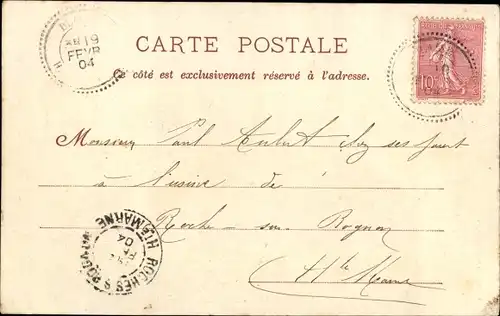 19
FEVR
04
CARTE POSTALE
Ce côté est exclusivement réservé à l'adresse.
10
Monsieur Paul Aubert chez ses parents
à l'usine de
Roche sur Rognon
Hte Marne
ROCHES S ROGNON
04
HTE MARNE